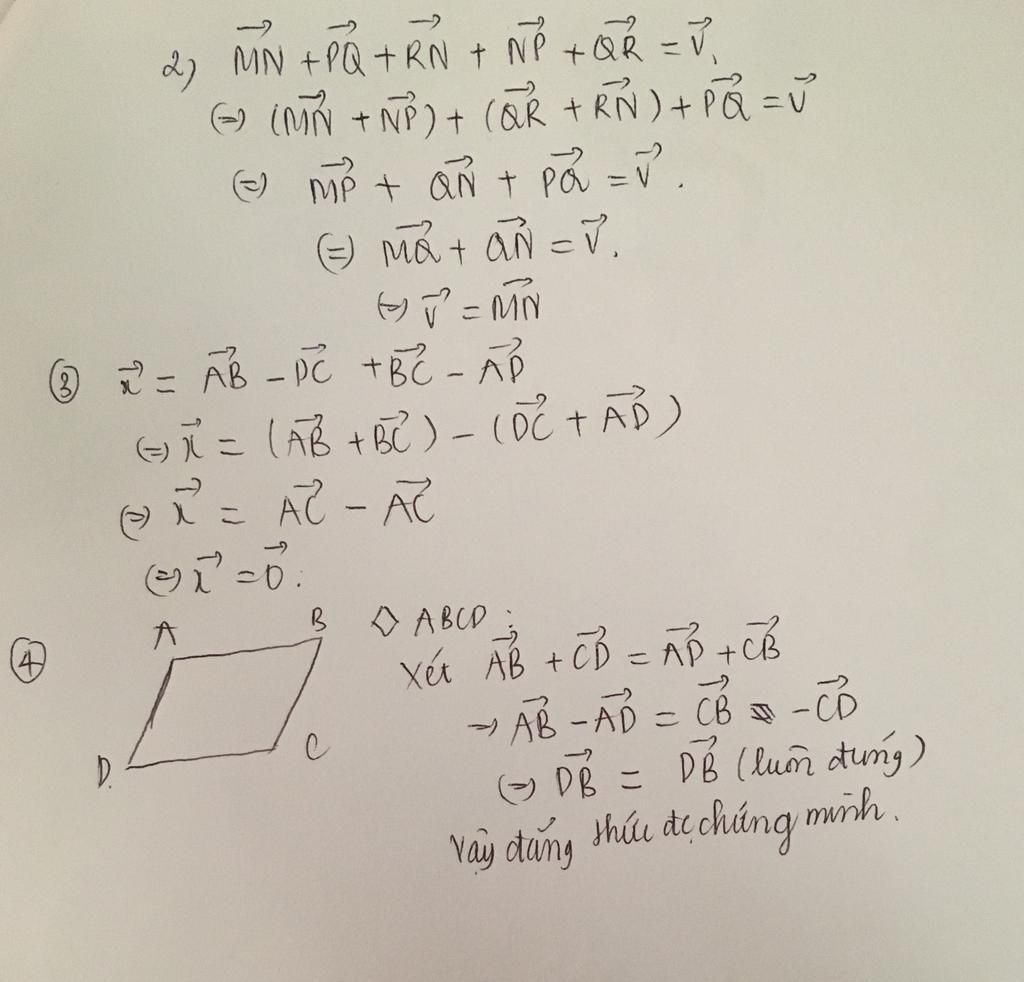 2) $\overrightarrow{MN} + \overrightarrow{PQ} + \overrightarrow{RN} + \overrightarrow{NP} + \overrightarrow{QR} = \overrightarrow{v}$
(=) $(\overrightarrow{MN} + \overrightarrow{NP}) + (\overrightarrow{QR} + \overrightarrow{RN}) + \overrightarrow{PQ} = \overrightarrow{v}$
(=) $\overrightarrow{MP} + \overrightarrow{QN} + \overrightarrow{PQ} = \overrightarrow{v}$.
(=) $\overrightarrow{MQ} + \overrightarrow{QN} = \overrightarrow{v}$.
(=) $\overrightarrow{v} = \overrightarrow{MN}$
③ $\overrightarrow{x} = \overrightarrow{AB} - \overrightarrow{DC} + \overrightarrow{BC} - \overrightarrow{AD}$
(=) $\overrightarrow{x} = (\overrightarrow{AB} + \overrightarrow{BC}) - (\overrightarrow{DC} + \overrightarrow{AD})$
(=) $\overrightarrow{x} = \overrightarrow{AC} - \overrightarrow{AC}$
(=) $\overrightarrow{x} = \overrightarrow{0}$.
④
A
B
D.
C
◇ ABCD :
Xét $\overrightarrow{AB} + \overrightarrow{CD} = \overrightarrow{AD} + \overrightarrow{CB}$
→ $\overrightarrow{AB} - \overrightarrow{AD} = \overrightarrow{CB} - \overrightarrow{CD}$
(=) $\overrightarrow{DB} = \overrightarrow{DB}$ (luôn đúng)
Vậy đẳng thức đc chứng minh.